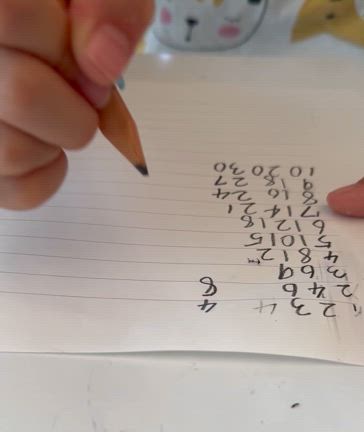 1 2 3 4 4
2 4 6 8
3 6 9
4 8 12
5 10 15
6 12 18
7 14 21
8 16 24
9 18 27
10 20 30